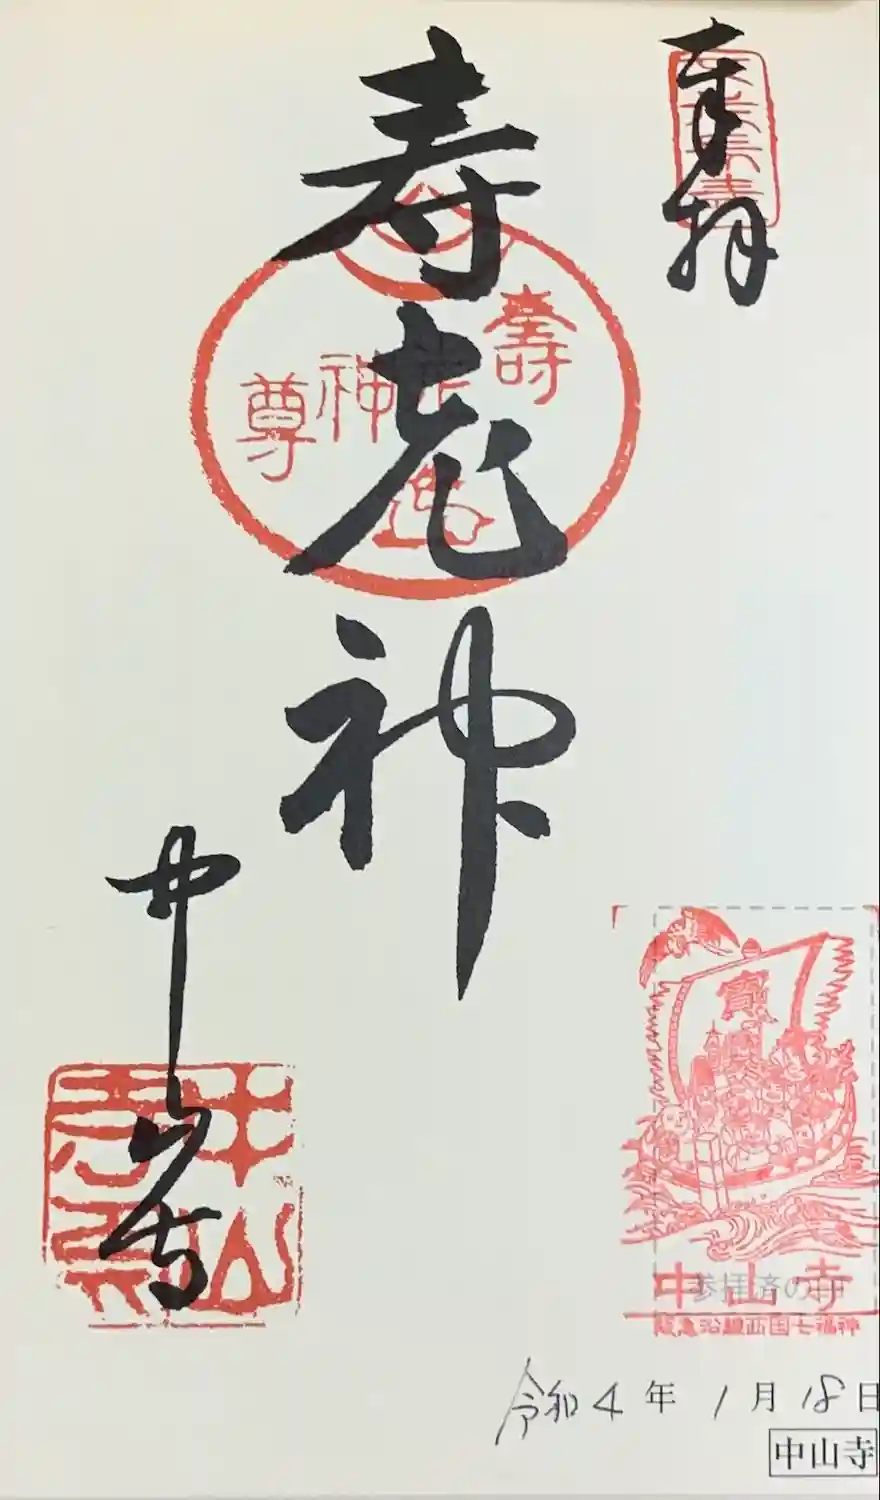 奉拝
寿老神
壽老神尊
中山寺
中山寺
寳
参拝済の印
中山寺
阪急沿線西国七福神
令和4年1月18日
中山寺